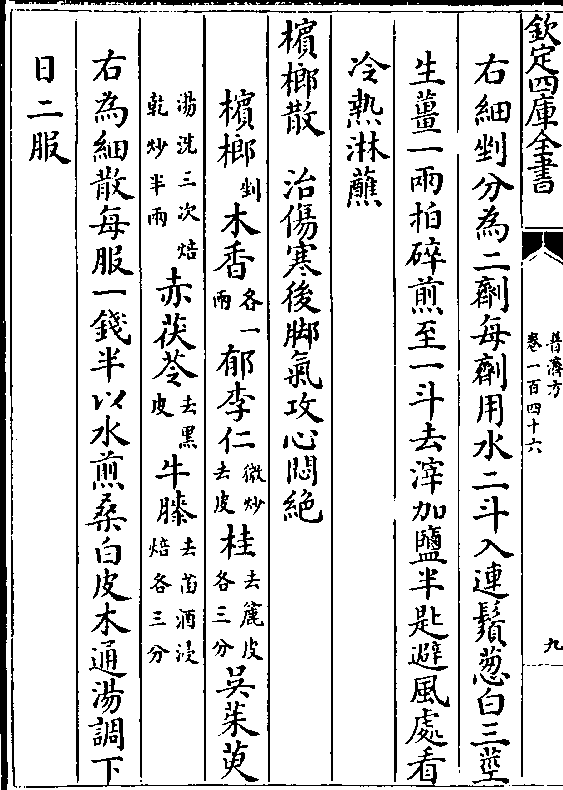 欽定四庫全書
普濟方
卷一百四十六
九
右細剉分為二劑每劑用水二斗入連鬚葱白三莖
生薑一兩拍碎煎至一斗去滓加鹽半匙避風處看
冷熱淋蘸
檳榔散 治傷寒後脚氣攻心悶絶
檳榔剉木香各一兩郁李仁微炒去皮桂去麄皮各三分吳茱萸
湯洗三次焙乾炒半兩赤茯苓去黑皮牛膝去苗酒浸焙各三分
右為細散每服一錢半以水煎桑白皮木通湯調下
日二服